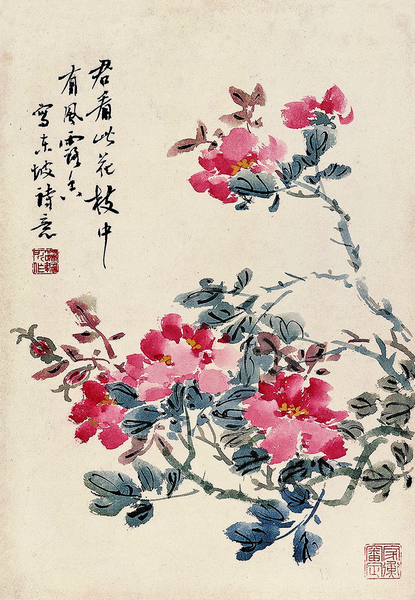 君看此花枝中
有風露香
寫東坡詩意